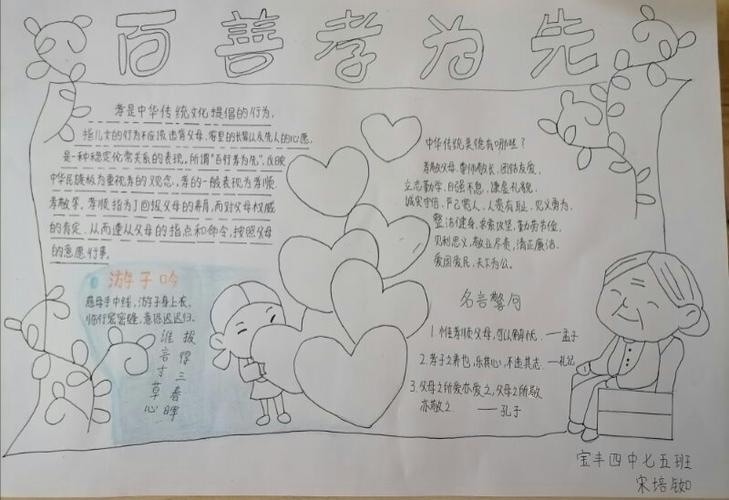 百善孝为先
孝是中华传统文化提倡的行为,
指儿女的行为不应该违背父母、家里的长辈以及先人的心愿,
是一种稳定伦常关系的表现,所谓“百行孝为先”,反映
中华民族极为重视孝的观念,孝的一般表现为孝顺、
孝敬等,孝顺指为了回报父母的养育,而对父母权威
的肯定,从而遵从父母的指点和命令,按照父母
的意愿行事。
游子吟
慈母手中线,游子身上衣,
临行密密缝,意恐迟迟归。
谁言寸草心
报得三春晖
中华传统美德有哪些?
孝敬父母、尊师敬长、团结友爱、
立志勤学、自强不息、谦虚礼貌、
诚实守信、严己宽人、人贵有耻、见义勇为、
整洁健身、求索攻坚、勤劳节俭、
见利思义、敬业尽责、清正廉洁、
爱国爱民、天下为公。
名言警句
1.惟孝顺父母,可以解忧。——孟子
2.孝子之养也,乐其心,不违其志。——礼记
3.父母之所爱亦爱之,父母之所敬
亦敬之 ——孔子
宝丰四中七五班
宋培如